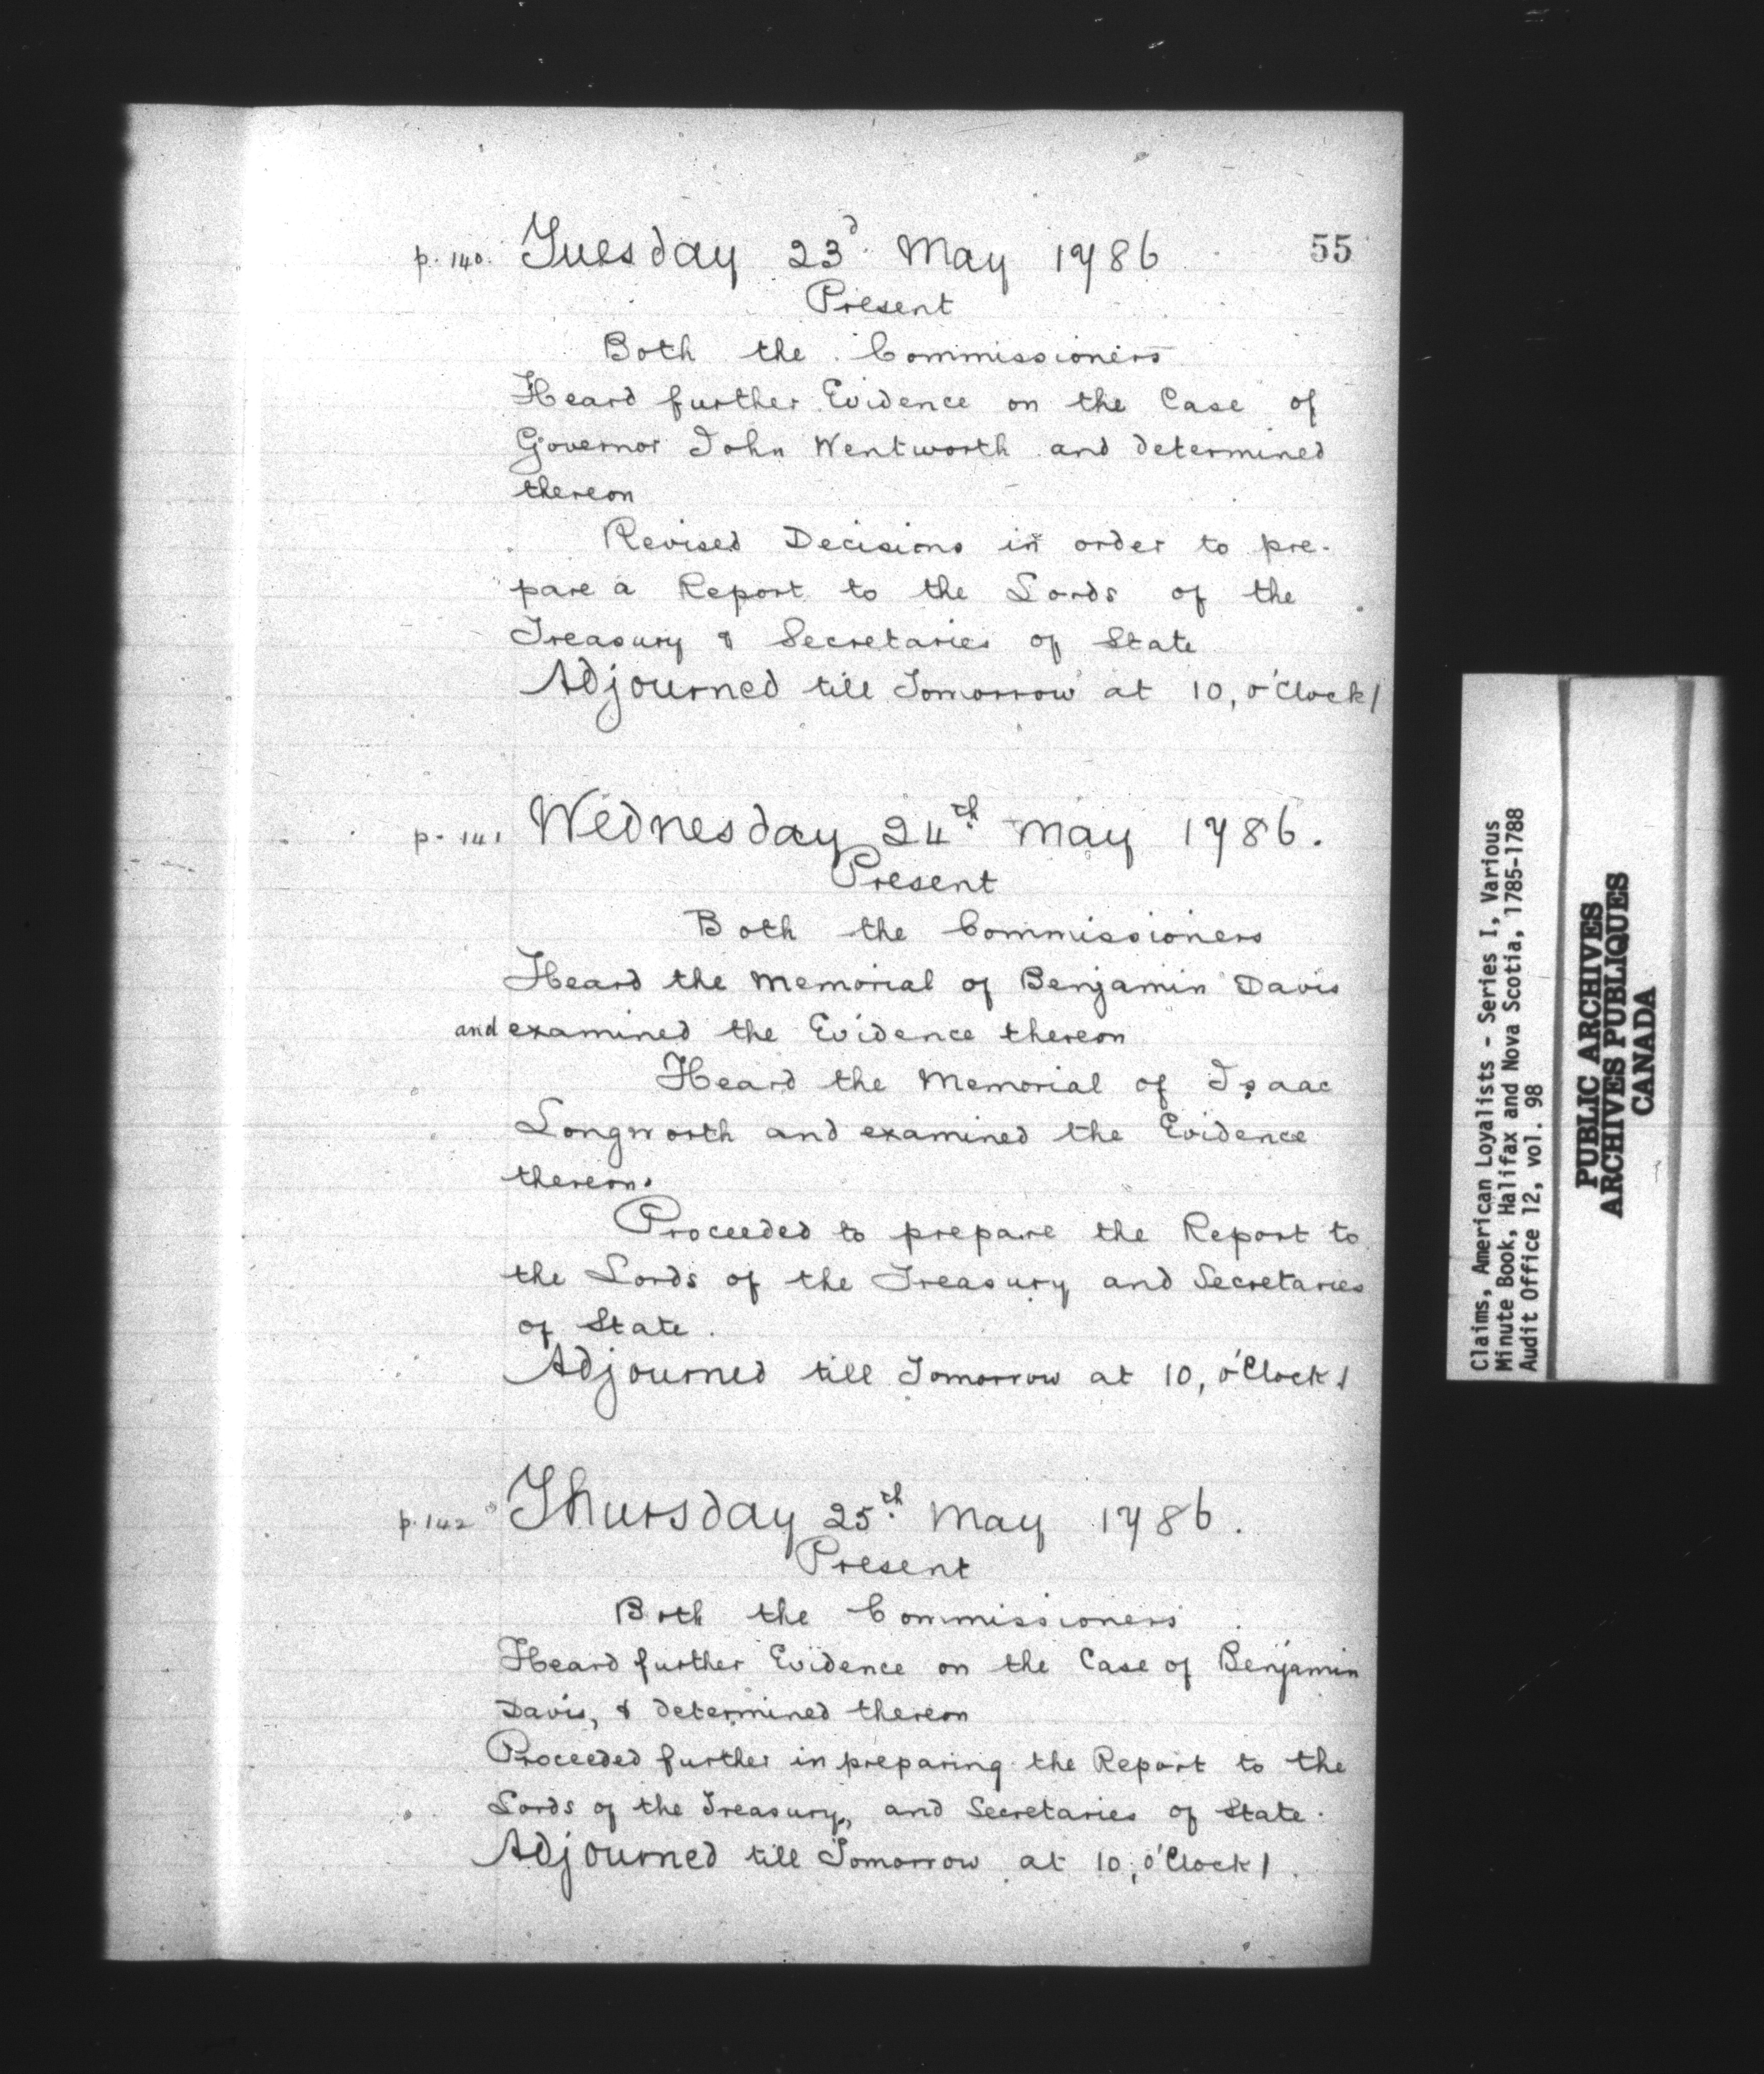 55
p. 140. Tuesday 23d May 1786
Present
Both the Commissioners
Heard further Evidence on the Case of
Governor John Wentworth and determined
thereon
Revised Decisions in order to pre-
pare a Report to the Lords of the
Treasury & Secretaries of State
Adjourned till Tomorrow at 10, o'Clock/
p. 141 Wednesday 24th May 1786.
Present
Both the Commissioners
Heard the Memorial of Benjamin Davis
and examined the Evidence thereon
Heard the Memorial of Isaac
Longworth and examined the Evidence
thereon.
Proceeded to prepare the Report to
the Lords of the Treasury and Secretaries
of State.
Adjourned till Tomorrow at 10, o'Clock/
p. 142 Thursday 25th May 1786.
Present
Both the Commissioners
Heard further Evidence on the Case of Benjamin
Davis, & determined thereon
Proceeded further in preparing the Report to the
Lords of the Treasury, and Secretaries of State.
Adjourned till Tomorrow at 10, o'Clock/
Claims, American Loyalists - Series I, Various
Minute Book, Halifax and Nova Scotia, 1785-1788
Audit Office 12, vol. 98
PUBLIC ARCHIVES
ARCHIVES PUBLIQUES
CANADA